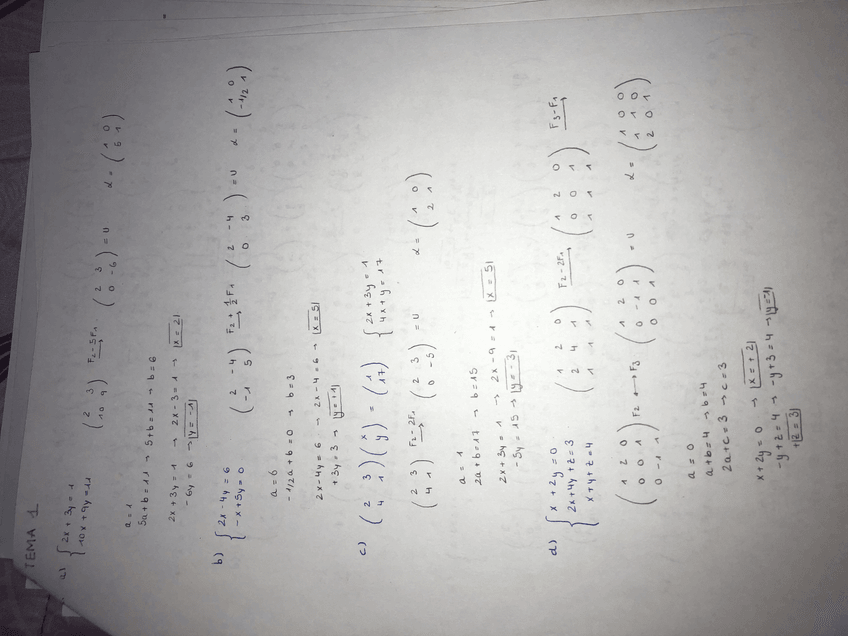 TEMA 1
a) { 2x + 3y = 1
10x + 9y = 11
( 2 3
10 9 ) F2-5F1 → ( 2 3
0 -6 ) = U α = ( 1 0
5 1 )
a = 1
5a + b = 11 → 5 + b = 11 → b = 6
2x + 3y = 1 → 2x - 3 = 1 → x = 2
- 6y = 6 → y = -1
b) { 2x - 4y = 6
-x + 5y = 0
( 2 -4
-1 5 ) F2 + 1/2 F1 → ( 2 -4
0 3 ) = U α = ( 1 0
-1/2 1 )
a = 6
-1/2a + b = 0 → b = 3
2x - 4y = 6 → 2x - 4 = 6 → x = 5
+3y = 3 → y = +1
c) ( 2 3
4 1 ) ( x
y ) = ( 1
17 ) { 2x + 3y = 1
4x + y = 17
( 2 3
4 1 ) F2-2F1 → ( 2 3
0 -5 ) = U α = ( 1 0
2 1 )
a = 1
2a + b = 17 → b = 15
2x + 3y = 1 → 2x - 9 = 1 → x = 5
-5y = 15 → y = -3
d) { x + 2y = 0
2x + 4y + z = 3
x + y + z = 4
( 1 2 0
2 4 1
1 1 1 ) F2-2F1 → ( 1 2 0
0 0 1
1 1 1 ) F3-F1 →
( 1 2 0
0 0 1
0 -1 1 ) F2 ↔ F3 ( 1 2 0
0 -1 1
0 0 1 ) = U α = ( 1 0 0
1 1 0
2 0 1 )
a = 0
a + b = 4 → b = 4
2a + c = 3 → c = 3
x + 2y = 0 → x = +2
-y + z = 4 → -y + 3 = 4 → y = -1
+z = 3